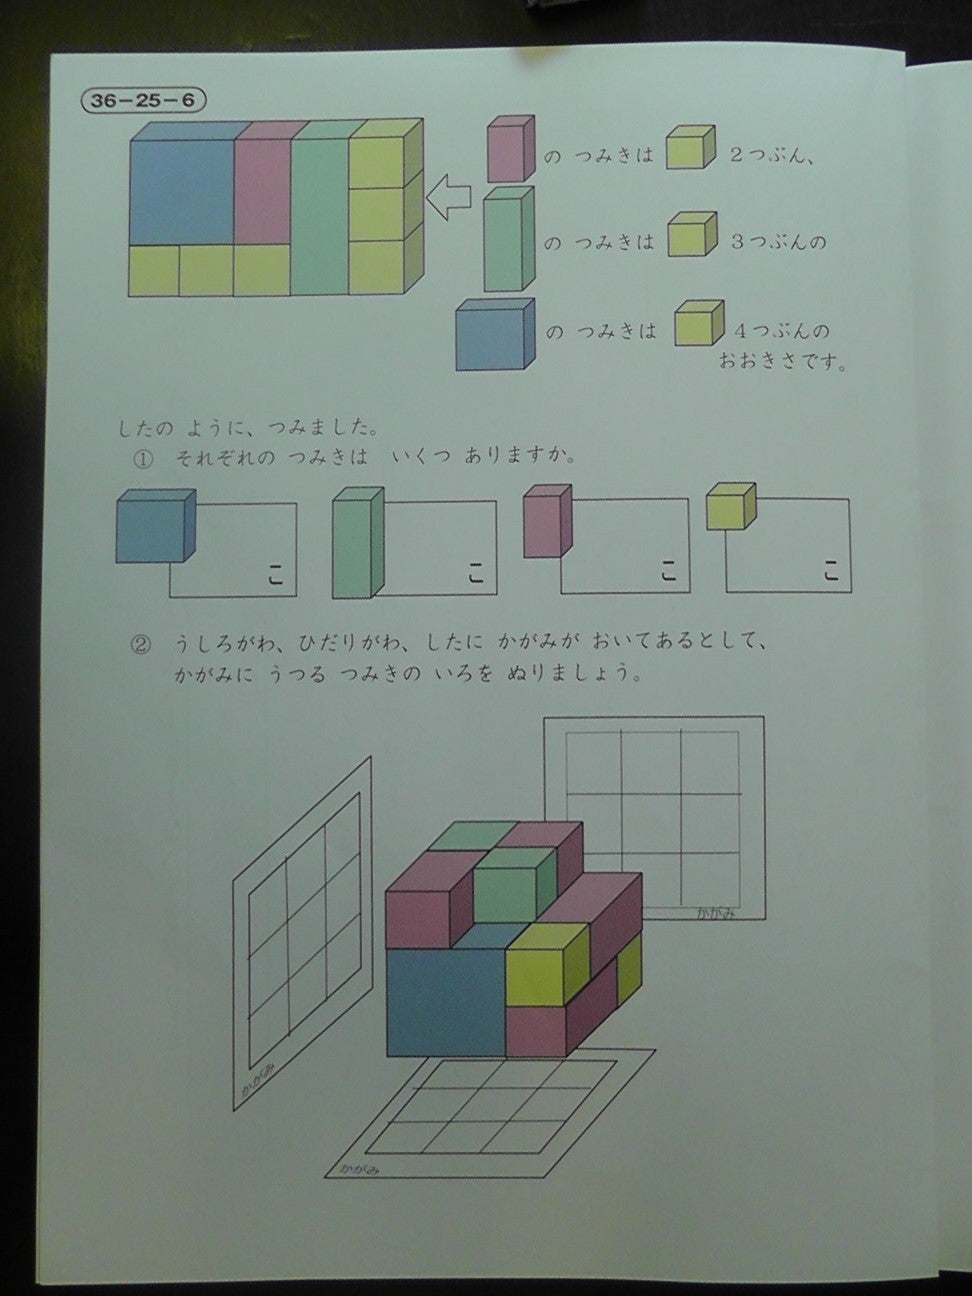 36-25-6
の つみきは 2つぶん、
の つみきは 3つぶんの
の つみきは 4つぶんの
おおきさです。
したの ように、つみました。
① それぞれの つみきは いくつ ありますか。
こ こ こ こ
② うしろがわ、ひだりがわ、したに かがみが おいてあるとして、
かがみに うつる つみきの いろを ぬりましょう。
かがみ
かがみ
かがみ